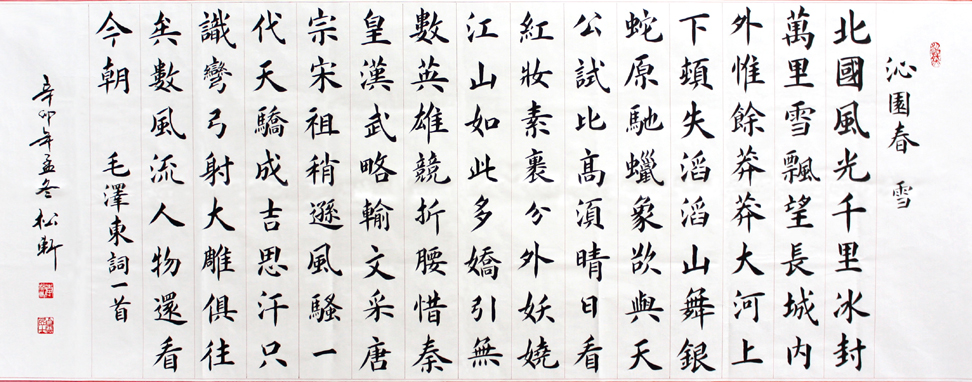 沁園春 雪
北國風光千里冰封
萬里雪飄望長城内
外惟餘莽莽大河上
下頓失滔滔山舞銀
蛇原馳蠟象欲與天
公試比高須晴日看
紅妝素裹分外妖嬈
江山如此多嬌引無
數英雄競折腰惜秦
皇漢武略輸文采唐
宗宋祖稍遜風騷一
代天驕成吉思汗只
識彎弓射大雕俱往
矣數風流人物還看
今朝 毛澤東詞一首
辛卯年孟冬松軒